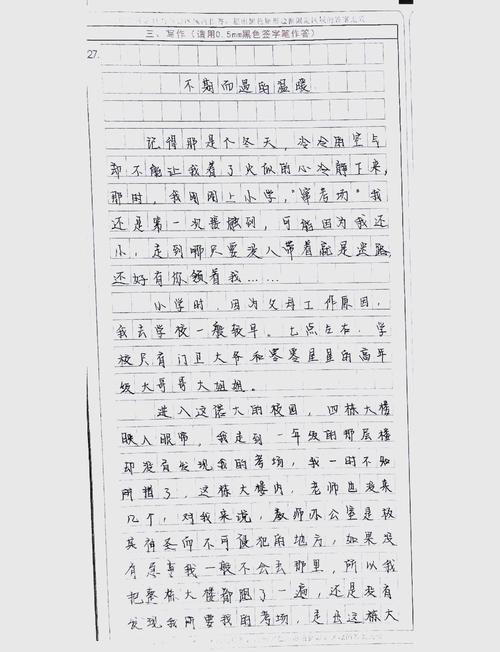 三、写作（请用0.5mm黑色签字笔作答）
27.
不期而遇的温暖
记得那是个冬天，冷冷的空气
却不能让我着了火似的心冷静下来，
那时，我刚上小学，"窜考场"我
还是第一次接触到，可能因为我还
小，走到哪只要没人带着就是迷路，
还好有你领着我……
小学时，因为父母工作原因，
我去学校一般较早。七点左右，学
校只有门卫大爷和零零星星的高年
级大哥哥大姐姐。
进入这偌大的校园，四栋大楼
映入眼帘，我走到一年级的那层楼
却没有发现我的考场，我一时不知
所措了，这栋大楼内，老师也没来
几个，对我来说，教师办公室是极
其神圣而不可侵犯的地方，如果没
有急事我一般不会去那里，所以我
把整栋大楼都跑了一遍，还是没有
发现我所要找的考场，走出这栋大